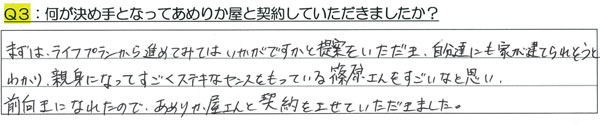 Q3：何が決め手となってあめりか屋と契約していただきましたか？
まずは、ライフプランから進めてみてはいかがですかと提案をいただき、自分達にも家が建てられそうと
わかり、親身になってすごくステキなセンスをもっている篠原さんをすごいなと思い、
前向きになれたので、あめりか屋さんと契約をさせていただきました。